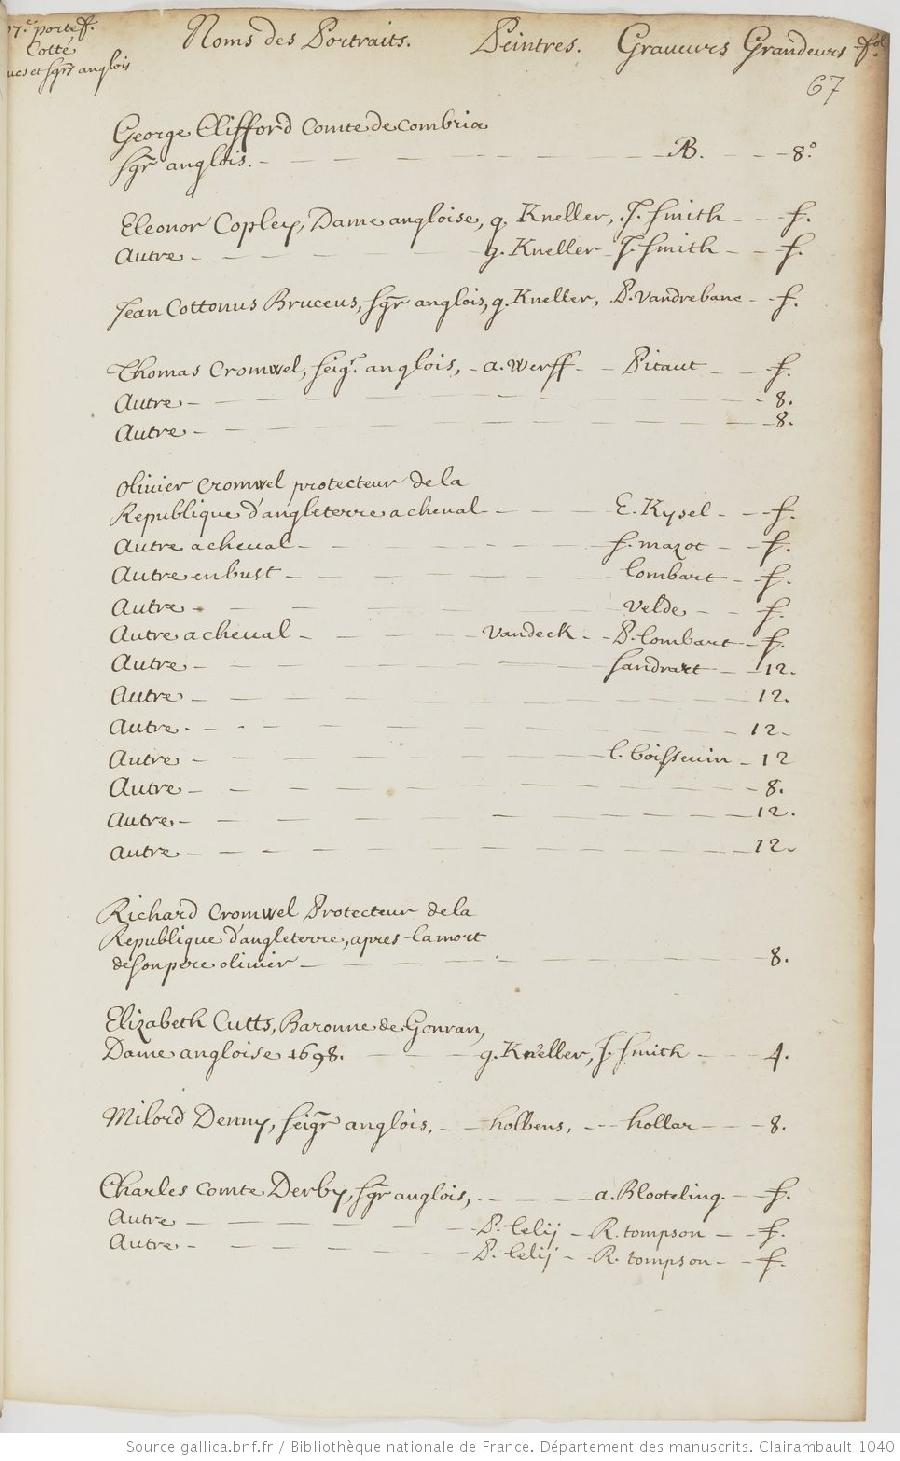 07e. porteff. Noms des Portraits. Peintres. Graveurs Grandeurs fol.
Cotté
ues et Sgrs anglois
67
George Clifford Comte de Combria
Sgr anglois. AB. 8.º
Eleonor Copley, Dame angloise, g. Kneller, J. Smith f.
Autre g. Kneller J. Smith f.
Jean Cottonus Bruceus, Sgr anglois, g. Kneller, P. Vandrebanc f.
Thomas Cromwel, Seigr. anglois, a. Werff Picaut f.
Autre 8.
Autre 8.
Olivier Cromwel protecteur de la
Republique d'angleterre a cheval E. Kysel f.
Autre a cheval f. mazot f.
Autre en bust Lombart f.
Autre Velde f.
Autre a cheval Vandeck P. Lombart f.
Autre Sandrart 12.
Autre 12.
Autre 12
Autre l. boissevin 12
Autre 8.
Autre 12.
Autre 12.
Richard Cromwel Protecteur de la
Republique d'angleterre, apres la mort
de son pere olivier 8.
Elizabeth Cutts, Baronne de Gouran,
Dame angloise 1698. g. Kneller, J. Smith 4.
Milord Denny, Seigr anglois, holbens, hollar 8.
Charles comte Derby, Sgr anglois, a. Blooteling f.
Autre P. Lelij R. tompson f.
Autre P. Lelij R. tompson f.
Source gallica.bnf.fr / Bibliothèque nationale de France. Département des manuscrits. Clairambault 1040